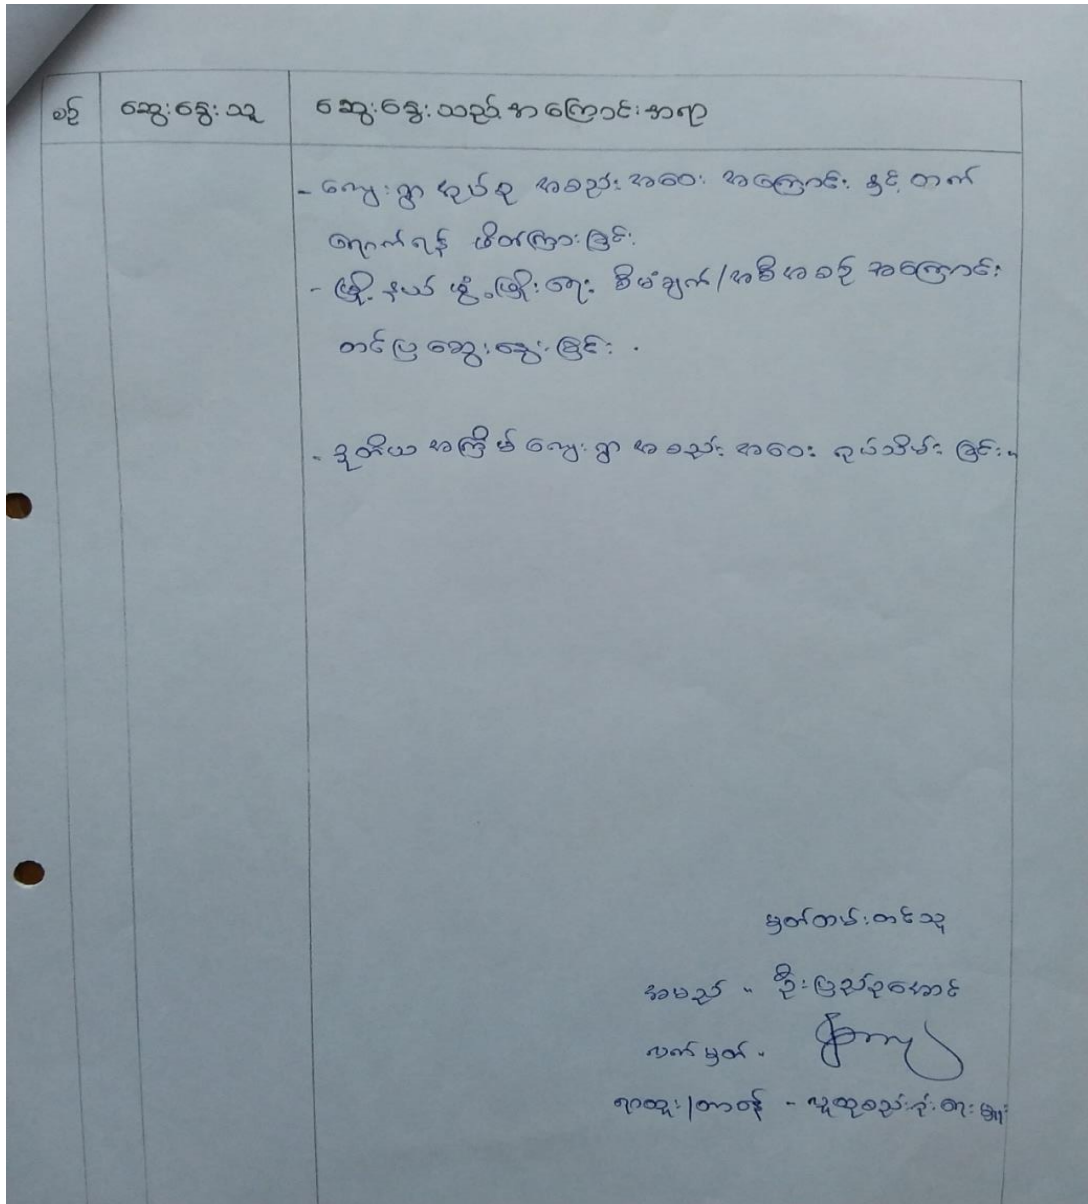 စဉ် ဆွေးနွေးသူ ဆွေးနွေးသည့်အကြောင်းအရာ
- ကျေးရွာအုပ်စု အစည်းအဝေး အကြောင်း နှင့် တက်
ရောက်ရန် ဖိတ်ကြားခြင်း
- မြို့နယ် ဖွံ့ဖြိုးရေး စီမံချက်/အစီအစဉ် အကြောင်း
တင်ပြဆွေးနွေးခြင်း .
- ဒုတိယ အကြိမ် ကျေးရွာ အစည်းအဝေး ရုပ်သိမ်းခြင်း။
မှတ်တမ်းတင်သူ
အမည် - ဦးပြည့်စုအောင်
လက်မှတ် -
ရာထူး/တာဝန် - လူထုစည်းရုံးရေးမှူး